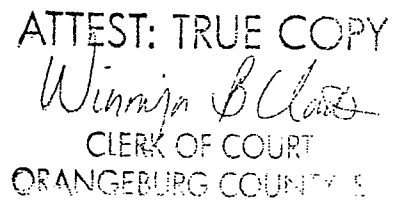 ATTEST: TRUE COPY
Winnifa B Clark
CLERK OF COURT
ORANGEBURG COUNTY S